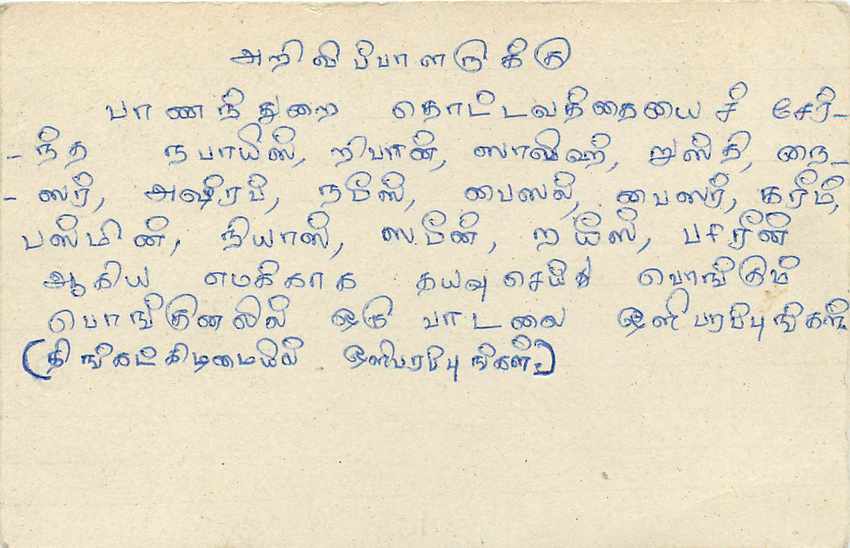 அறிவிப்பாளருக்கு
பாணந்துறை தொட்டவத்தையைச் சேர்-
-ந்த நபாயிஸ், றிபான், ஸாஷிஹ், றுஸ்தி, நை-
-ஸர், அஷ்ரப், நபீஸ், பைஸல், பைஸர், கரீம்,
பஸ்மின், நியாஸ், ஸபீன், றயீஸ், பசுரீன்
ஆகிய எமக்காக தயவு செய்து பொங்கும்
பொங்குனலில் ஒரு பாடலை ஒளிபரப்புங்கள்
(திங்கட்கிடமையில் ஒளிபரப்புங்கள்.)